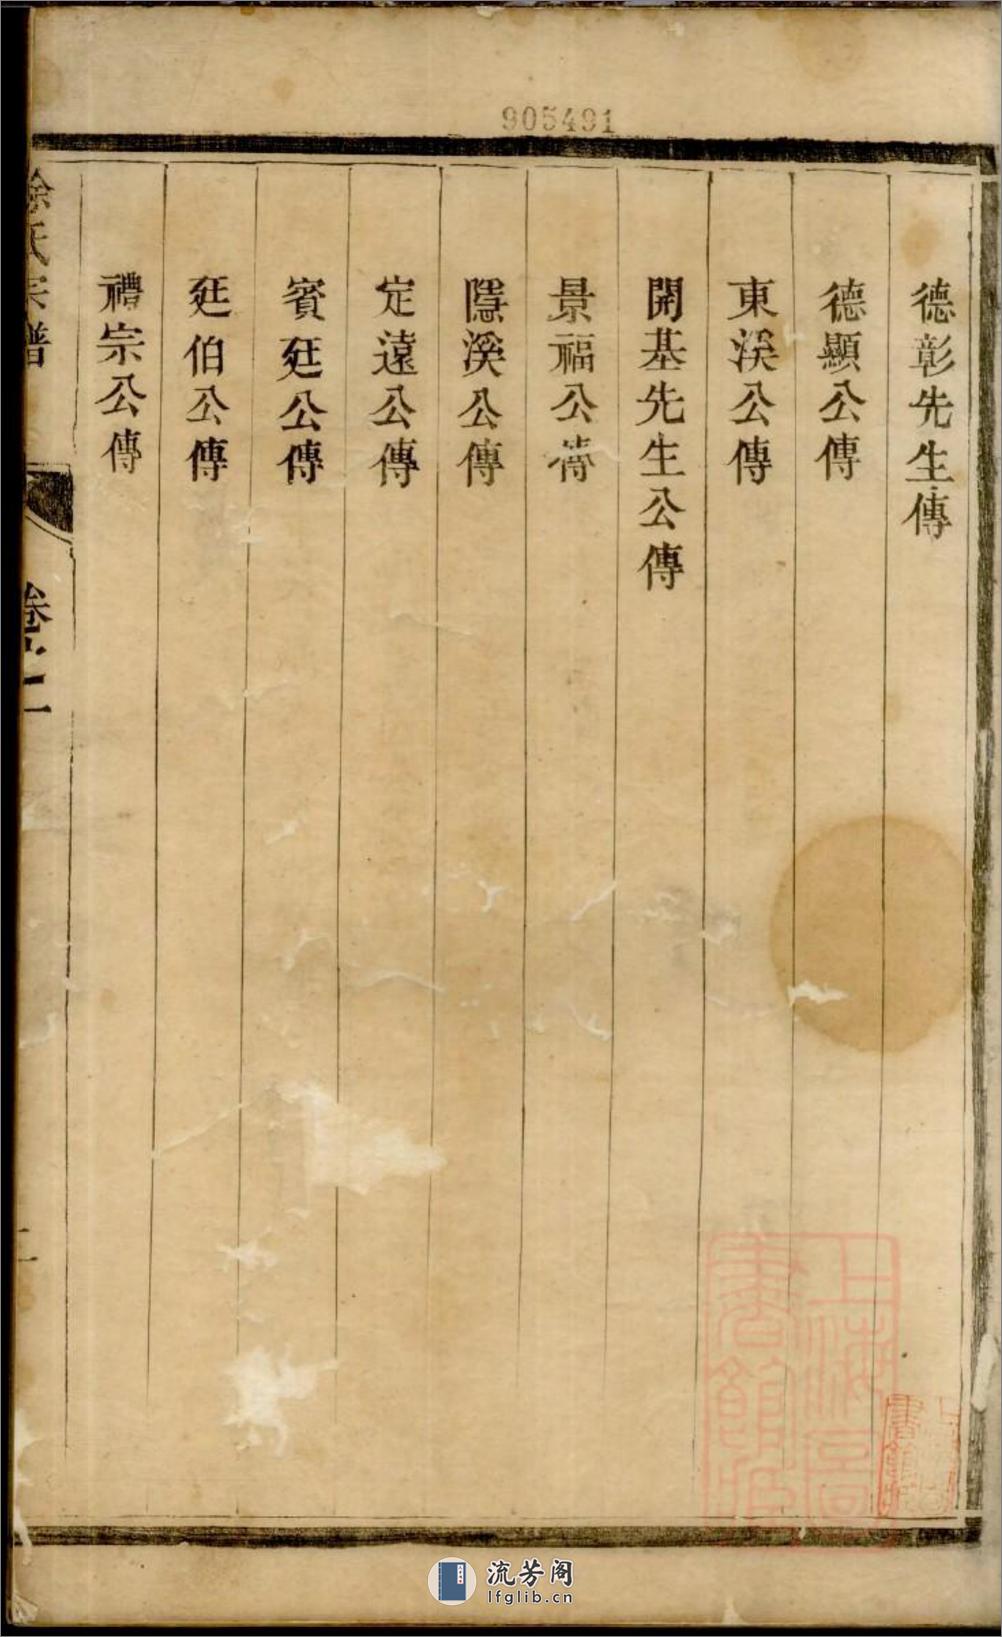 905491
德彰先生傳
德顯公傳
東溪公傳
開基先生公傳
景福公傳
隱溪公傳
定遠公傳
賓廷公傳
廷伯公傳
禮宗公傳
氏宗譜
卷之二
二
上海圖書館藏
流芳阁
lfglib.cn